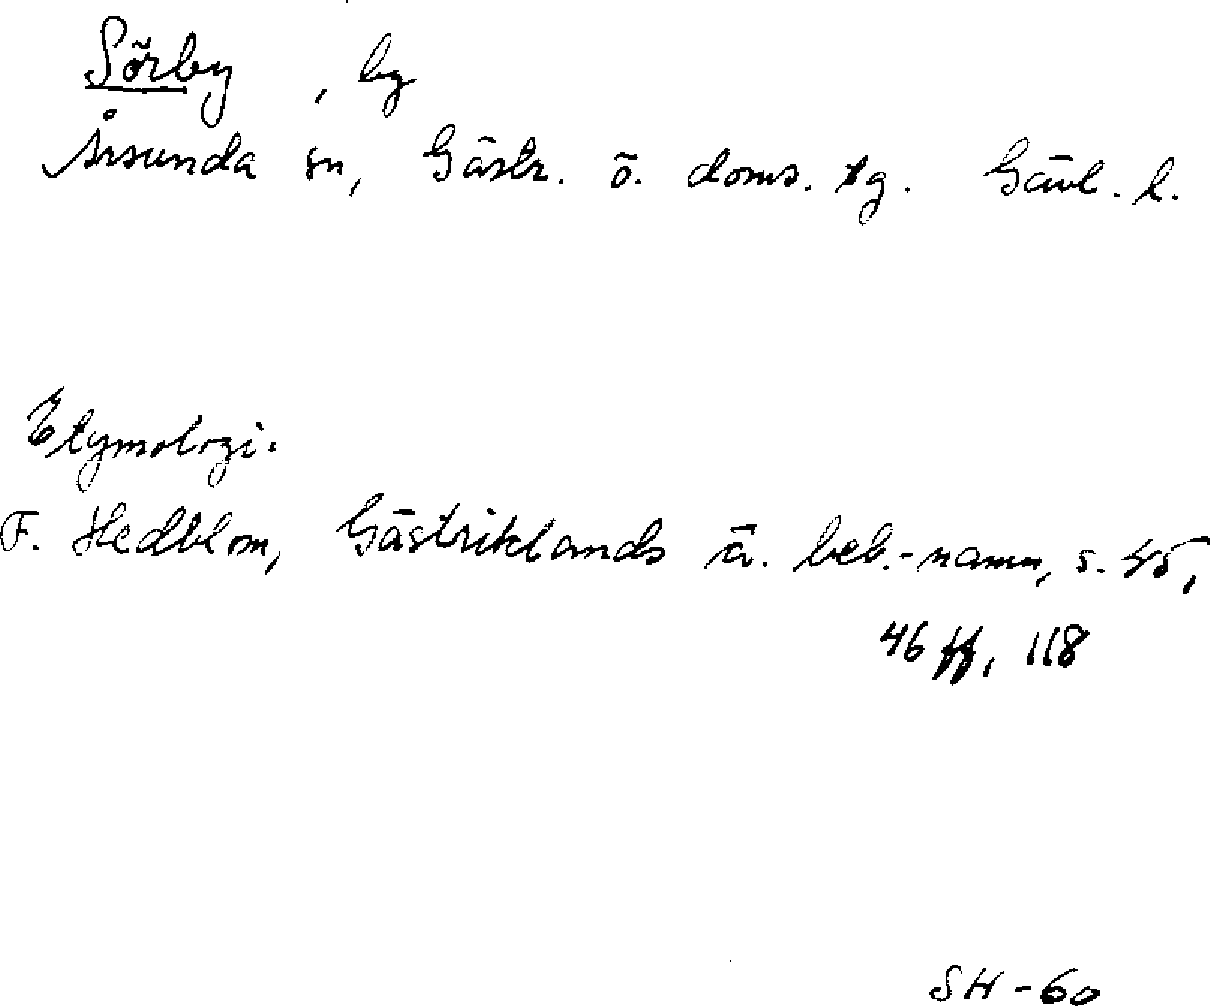 Sörby , by
Årsunda sn, Gästr. ö. doms. tg. Gävl. l.
Etymologi.
F. Hedblom, Gästriklands ä. beb.-namn, s. 45,
46 ff, 118
SH-60